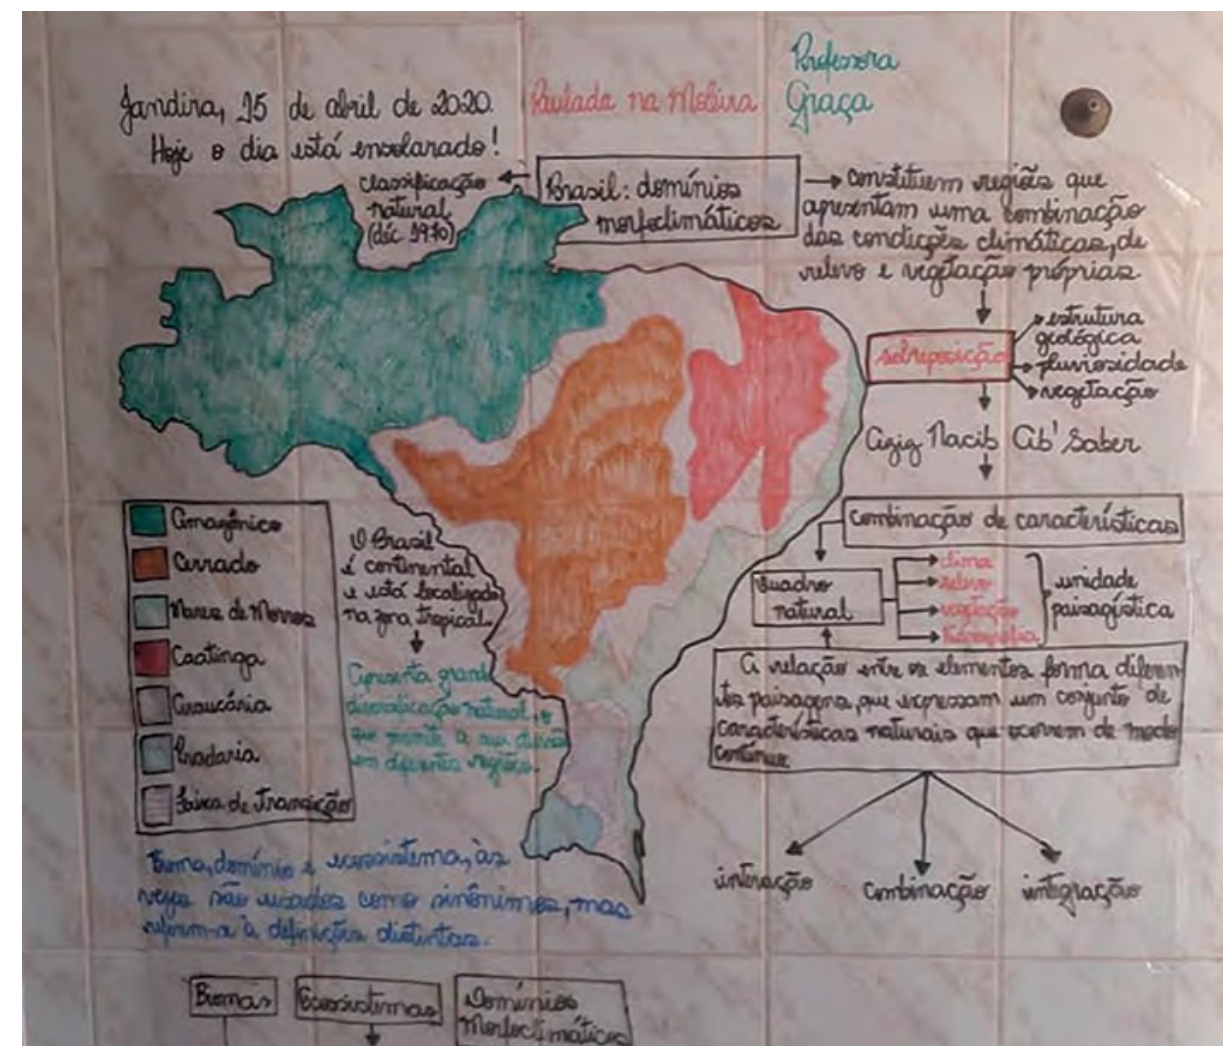 Jandira, 15 de abril de 2020.
Hoje o dia está ensolarado!
Paulada na Moleira
Professora
Graça
classificação
natural
(déc 1970)
Brasil: domínios
morfoclimáticos
constituem regiões que
apresentam uma combinação
das condições climáticas, de
relevo e vegetação próprias
sobreposição
estrutura
geológica
pluviosidade
vegetação
Aziz Nacib Ab' Saber
combinação de características
Quadro
natural
clima
relevo
vegetação
hidrografia
unidade
paisagística
A relação entre os elementos forma diferen-
tes paisagens, que expressam um conjunto de
características naturais que ocorrem de modo
contínuo
interação
combinação
integração
Amazônico
Cerrado
Mares de Morros
Caatinga
Araucária
Pradaria
Faixa de Transição
O Brasil
é continental
e está localizado
na zona tropical.
Apresenta grande
diversificação natural, o
que permite a sua divisão
em diferentes regiões.
Bioma, domínio e ecossistema, às
vezes são usados como sinônimos, mas
referem-se à definições distintas.
Biomas
Ecossistemas
Domínios
Morfoclimáticos